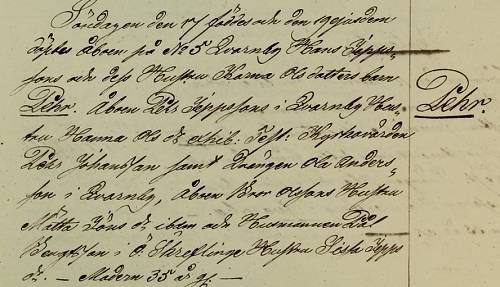 Söndagen den 17 föddes och den 19 ejusdem
döptes Åboen på No 5 Qvarnby Hans Jepps-
sons och dess Hustru Karna Olsdotters barn
Pehr. Åboen Pehr Jeppssons i Qvarnby Hus-
tru Hanna Ols dr exhib: Test: Kyrkovärden
Pehr Johansson samt Drängen Ola Anders-
son i Qvarnby, Åboen Bror Olssons Hustru
Mätta Jöns dr ibm och Husmannen Pål
Bengtsson i Ö. Skreflinge Hustru Sissa Jepps
dr. — Modern 35 år gl —
Pehr.